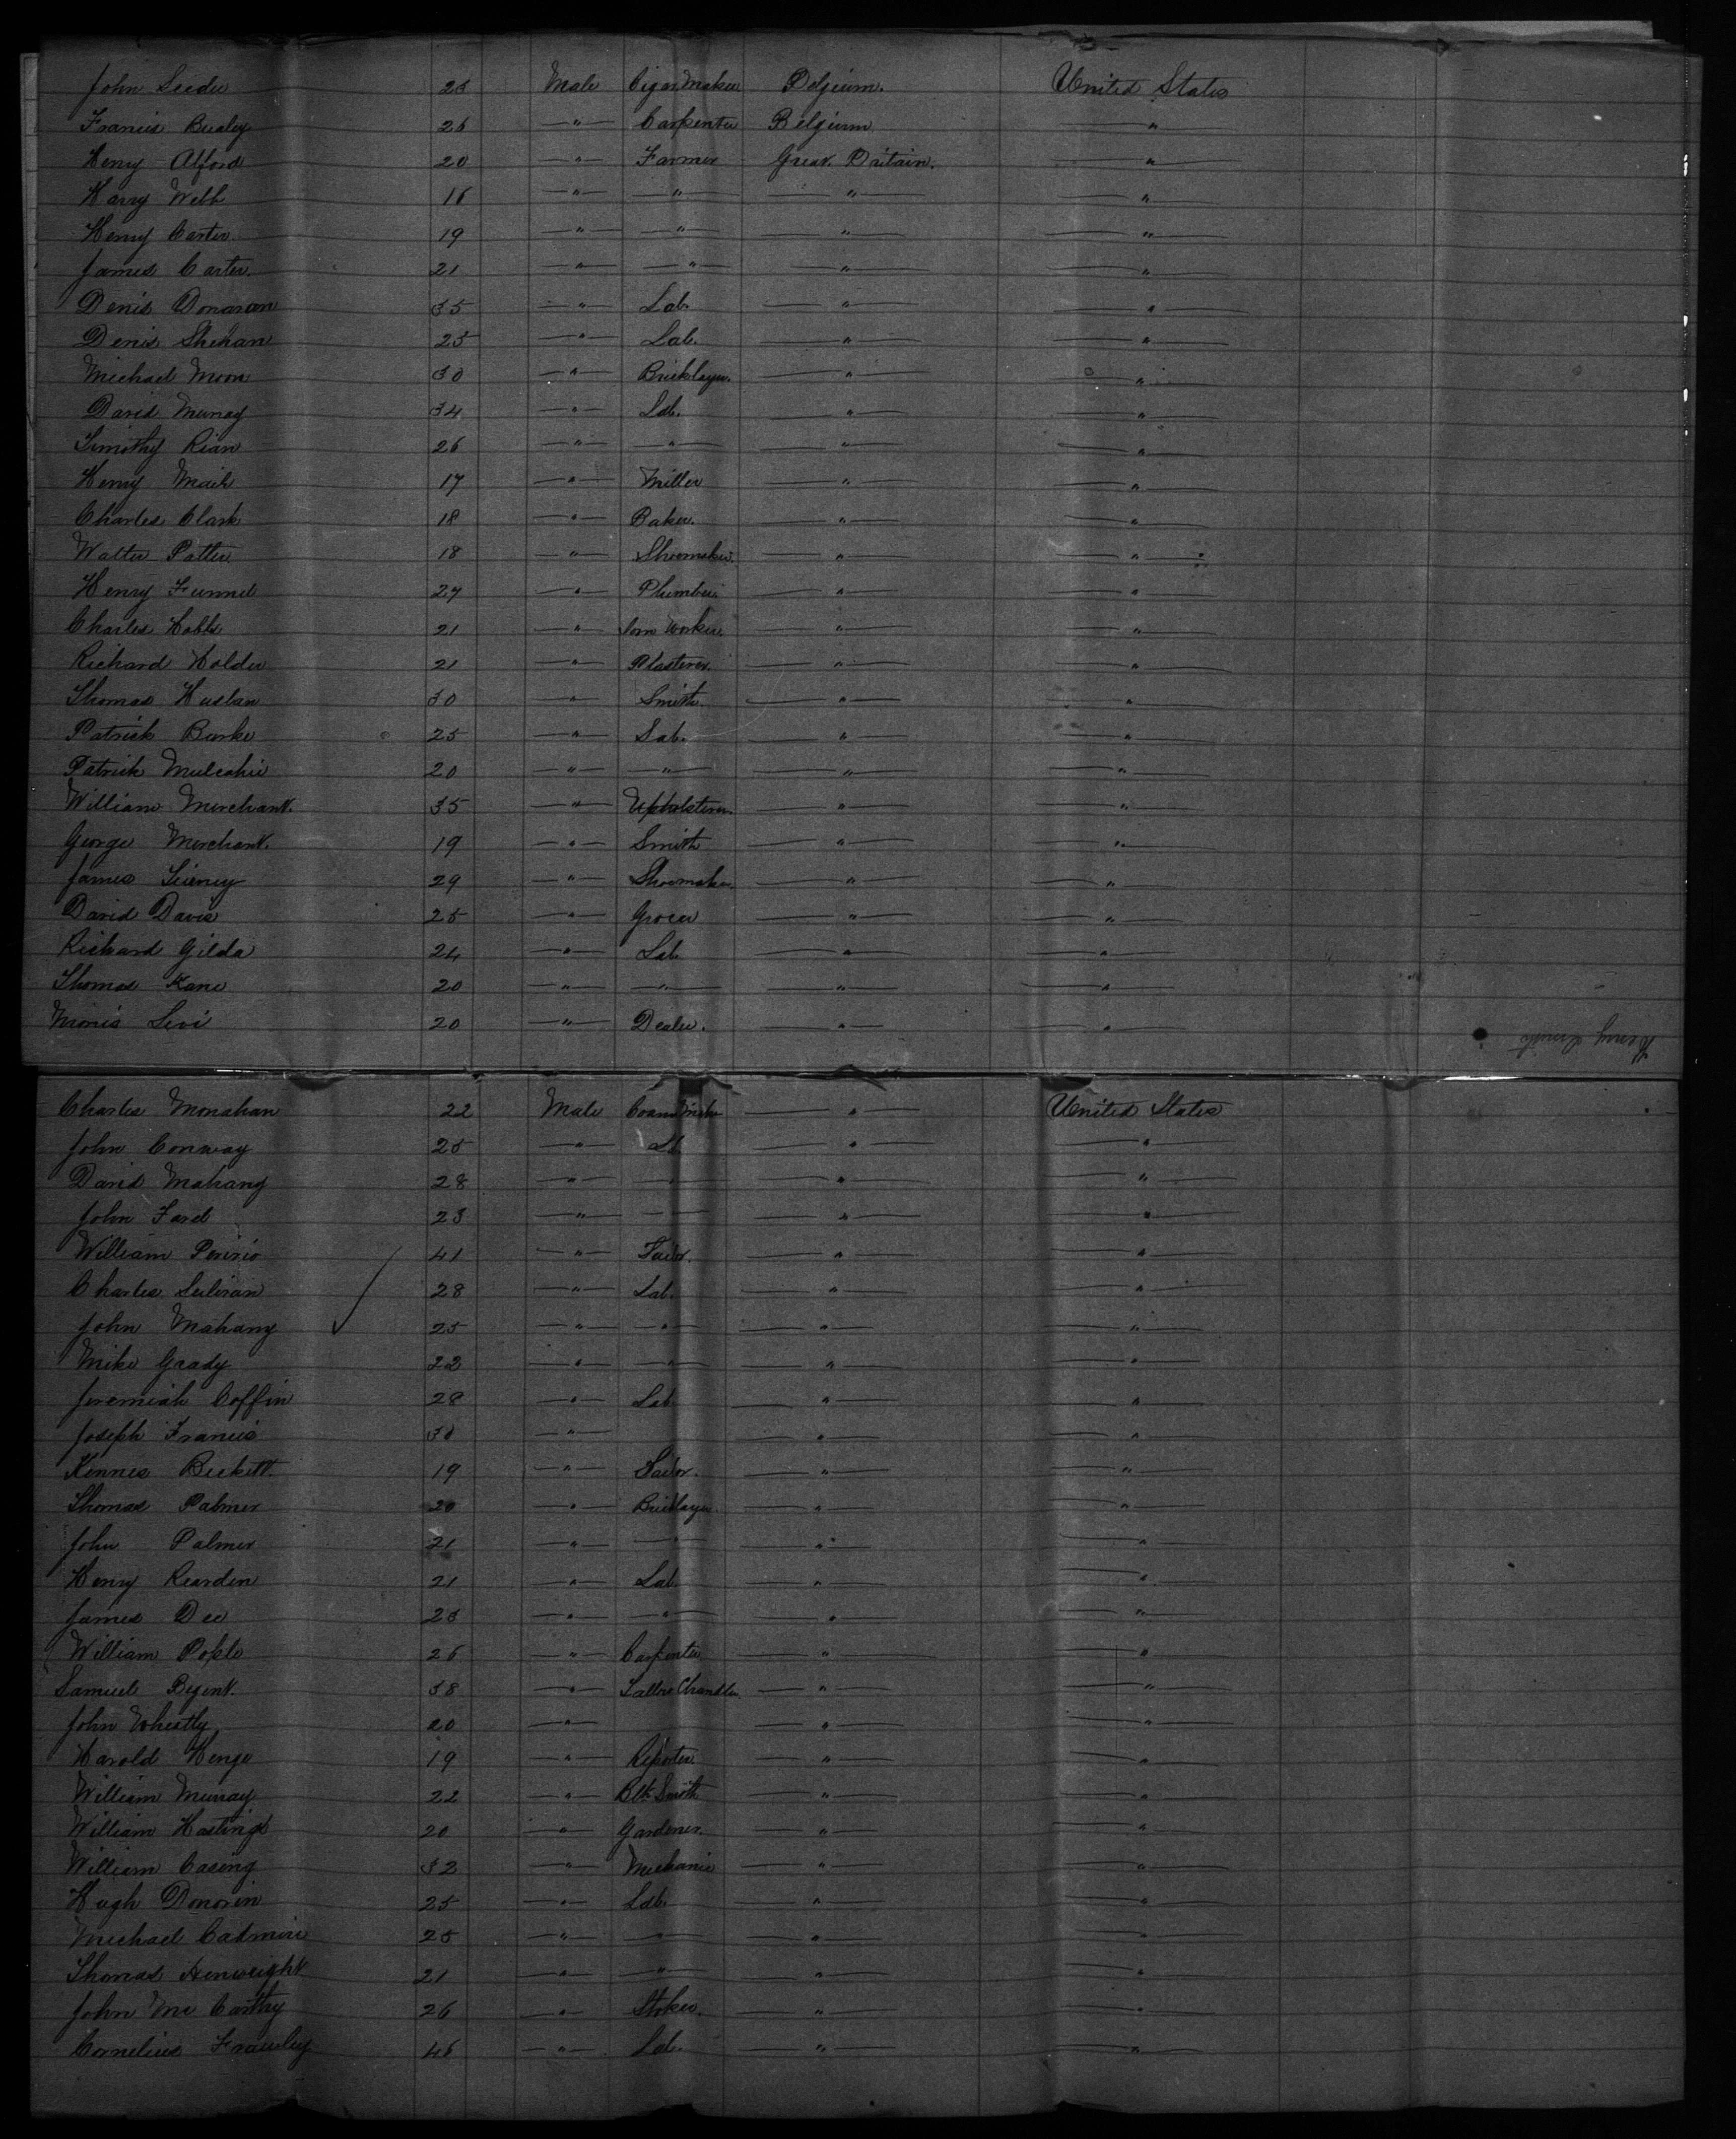 John Seeder 25 Male Cigar Maker Belgium. United States
Francis Bealey 26 " Carpenter Belgium "
Henry Alford 20 " Farmer Great Britain. "
Harry Webb 16 " " " "
Henry Carter 19 " " " "
James Carter 21 " " " "
Denis Donavan 35 " Lab. " "
Denis Shehan 25 " Lab. " "
Michael Moon 30 " Bricklayer. " "
David Murray 34 " Lab. " "
Timothy Rian 26 " " " "
Henry 17 " Miller " "
Charles Clark 18 " Baker. " "
Walter Potter 18 " Shoemaker. " "
Henry Funnel 27 " Plumber " "
Charles Hobbs 21 " Iron Worker " "
Richard Holder 21 " Plasterer. " "
Thomas Huslan 30 " Smith " "
Patrick Burke 25 " Lab. " "
Patrick Mulcahie 20 " " " "
William Merchant. 35 " Upholsterer. " "
George Merchant. 19 " Smith " "
James 29 " Shoemaker " "
David Davis 25 " Grocer " "
Richard Gilda 24 " Lab " "
Thomas Kane 20 " " " "
Morris Levi 20 " Dealer. " "
Henry Smith
Charles Monahan 22 Male " United States
John Conway 25 " Lb " "
David Mahany 28 " " " "
John Ford 23 " " "
William 41 " Tailor. " "
Charles Sulivan 28 " Lab. " "
John Mahany 25 " " " "
Mike Grady 22 " " " "
Jeremiah Coffin 28 " Lab " "
Joseph Francis 30 " " "
Kennes Beckett. 19 " Sailor. " "
Thomas Palmer 20 " Bricklayer. " "
John Palmer 21 " " " "
Henry Rearden 21 " Lab " "
James Dee 25 " " " "
William Pople 26 " Carpenter " "
Samuel Bryent. 38 " Tallow Chandler " "
John Wheatly 20 " " "
Harold Henge 19 " Reporter. " "
William Murray 22 " Blk Smith " "
William Hastings 20 " Gardener. " "
William Casing 32 " Mechanic " "
Hugh Donovin 25 " Lab. " "
Michael 25 " " " "
Thomas Henwright 21 " " " "
John Mc Carthy 26 " Stoker. " "
Cornelius Frawley 46 " Lab. " "